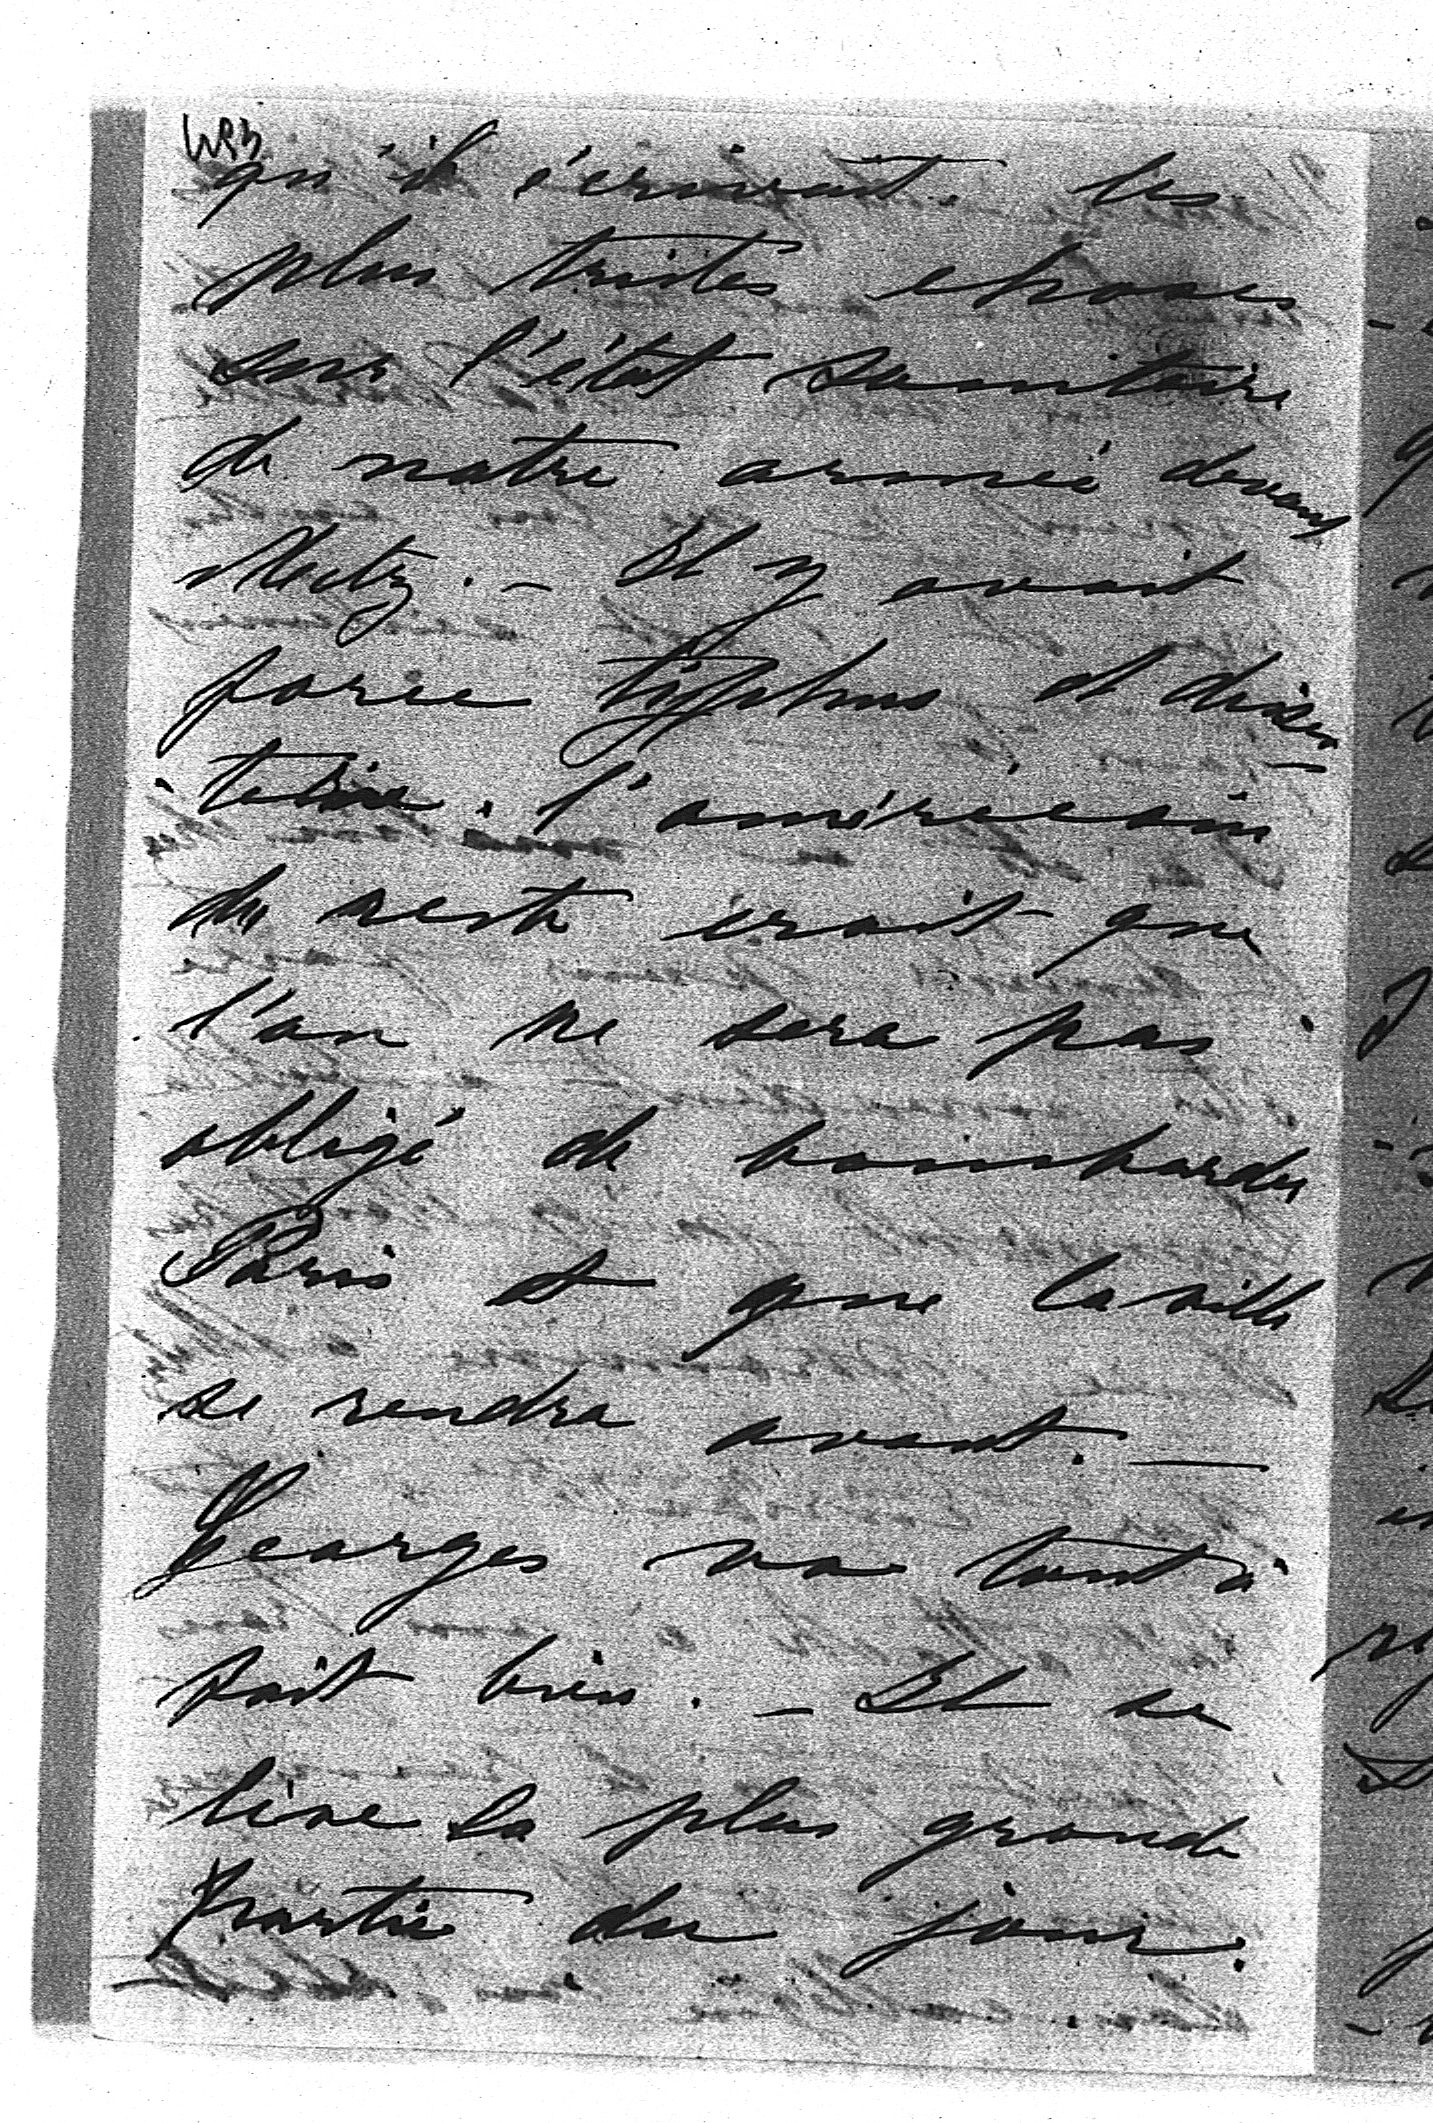 qu'il écrivait les
plus tristes choses
sur l'état sanitaire
de notre armée devant
Metz. - Il y avait
force typhus et disen-
terie. l'américain
du reste croit que
l'on ne sera pas
obligé de bombarder
Paris et que la ville
se rendra avant. —
Georges va tout à
fait bien. - Il se
lève la plus grande
partie du jour.